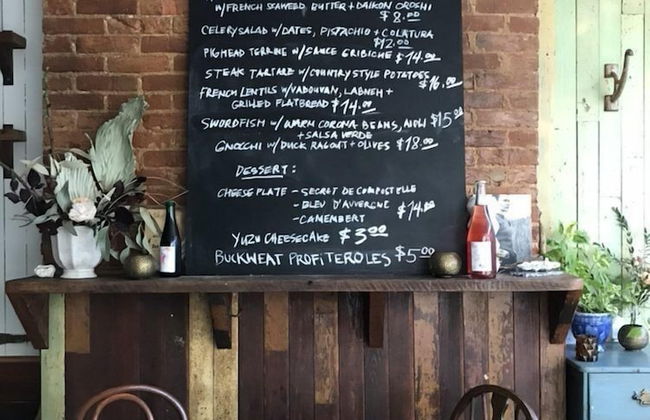 W/FRENCH SEAWEED BUTTER + DAIKON OROSHI
$8.00
CELERY SALAD W/ DATES, PISTACHIO + COLATURA
$12.00
PIGHEAD TERRINE W/ SAUCE GRIBICHE $14.00
STEAK TARTARE W/ COUNTRY STYLE POTATOES
$16.00
FRENCH LENTILS W/ VADOUVAN, LABNEH +
GRILLED FLATBREAD $14.00
SWORDFISH W/ WARM CORONA BEANS, AIOLI $15.00
+ SALSA VERDE
GNOCCHI W/ DUCK RAGOUT + OLIVES $18.00
DESSERT:
CHEESE PLATE - SECRET DE COMPOSTELLE
- BLEU D'AUVERGNE
$14.00
- CAMEMBERT
YUZU CHEESECAKE $3.00
BUCKWEAT PROFITEROLES $5.00